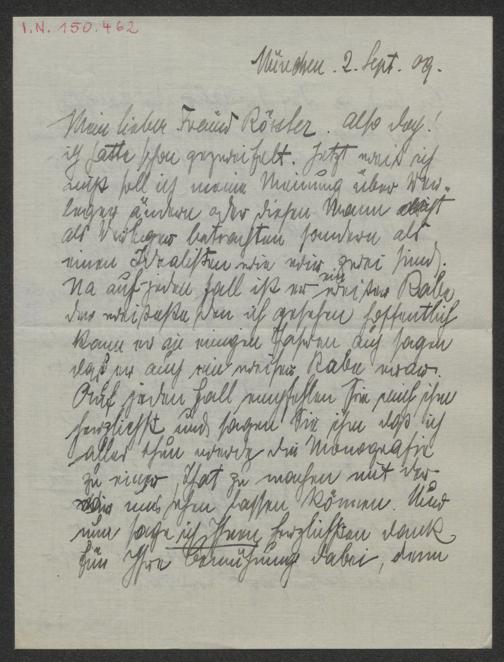 I.N. 150.462
München. 2. Sept. 09.
Mein lieber Freund Rössler. Also doch!
ich hatte schon gezweifelt. Jetzt weiß ich
nicht soll ich meine Meinung über Ver-
leger ändern oder diesen Mann nicht
als Verleger betrachten sondern als
einen Idealisten wie wir zwei sind.
Na auf jeden Fall ist er ein weißer Rabe
der weißeste den ich gesehen hoffentlich
kann er in einigen Jahren auch sagen
daß er auch ein weißer Rabe war.
Auf jeden Fall empfehlen Sie mich ihm
herzlichst und sagen Sie ihm daß ich
alles thun werde die Monografie
zu einer That zu machen mit der
wir uns sehen lassen können. Und
nun sage ich Ihnen herzlichsten dank
für Ihre Bemühung dabei, denn